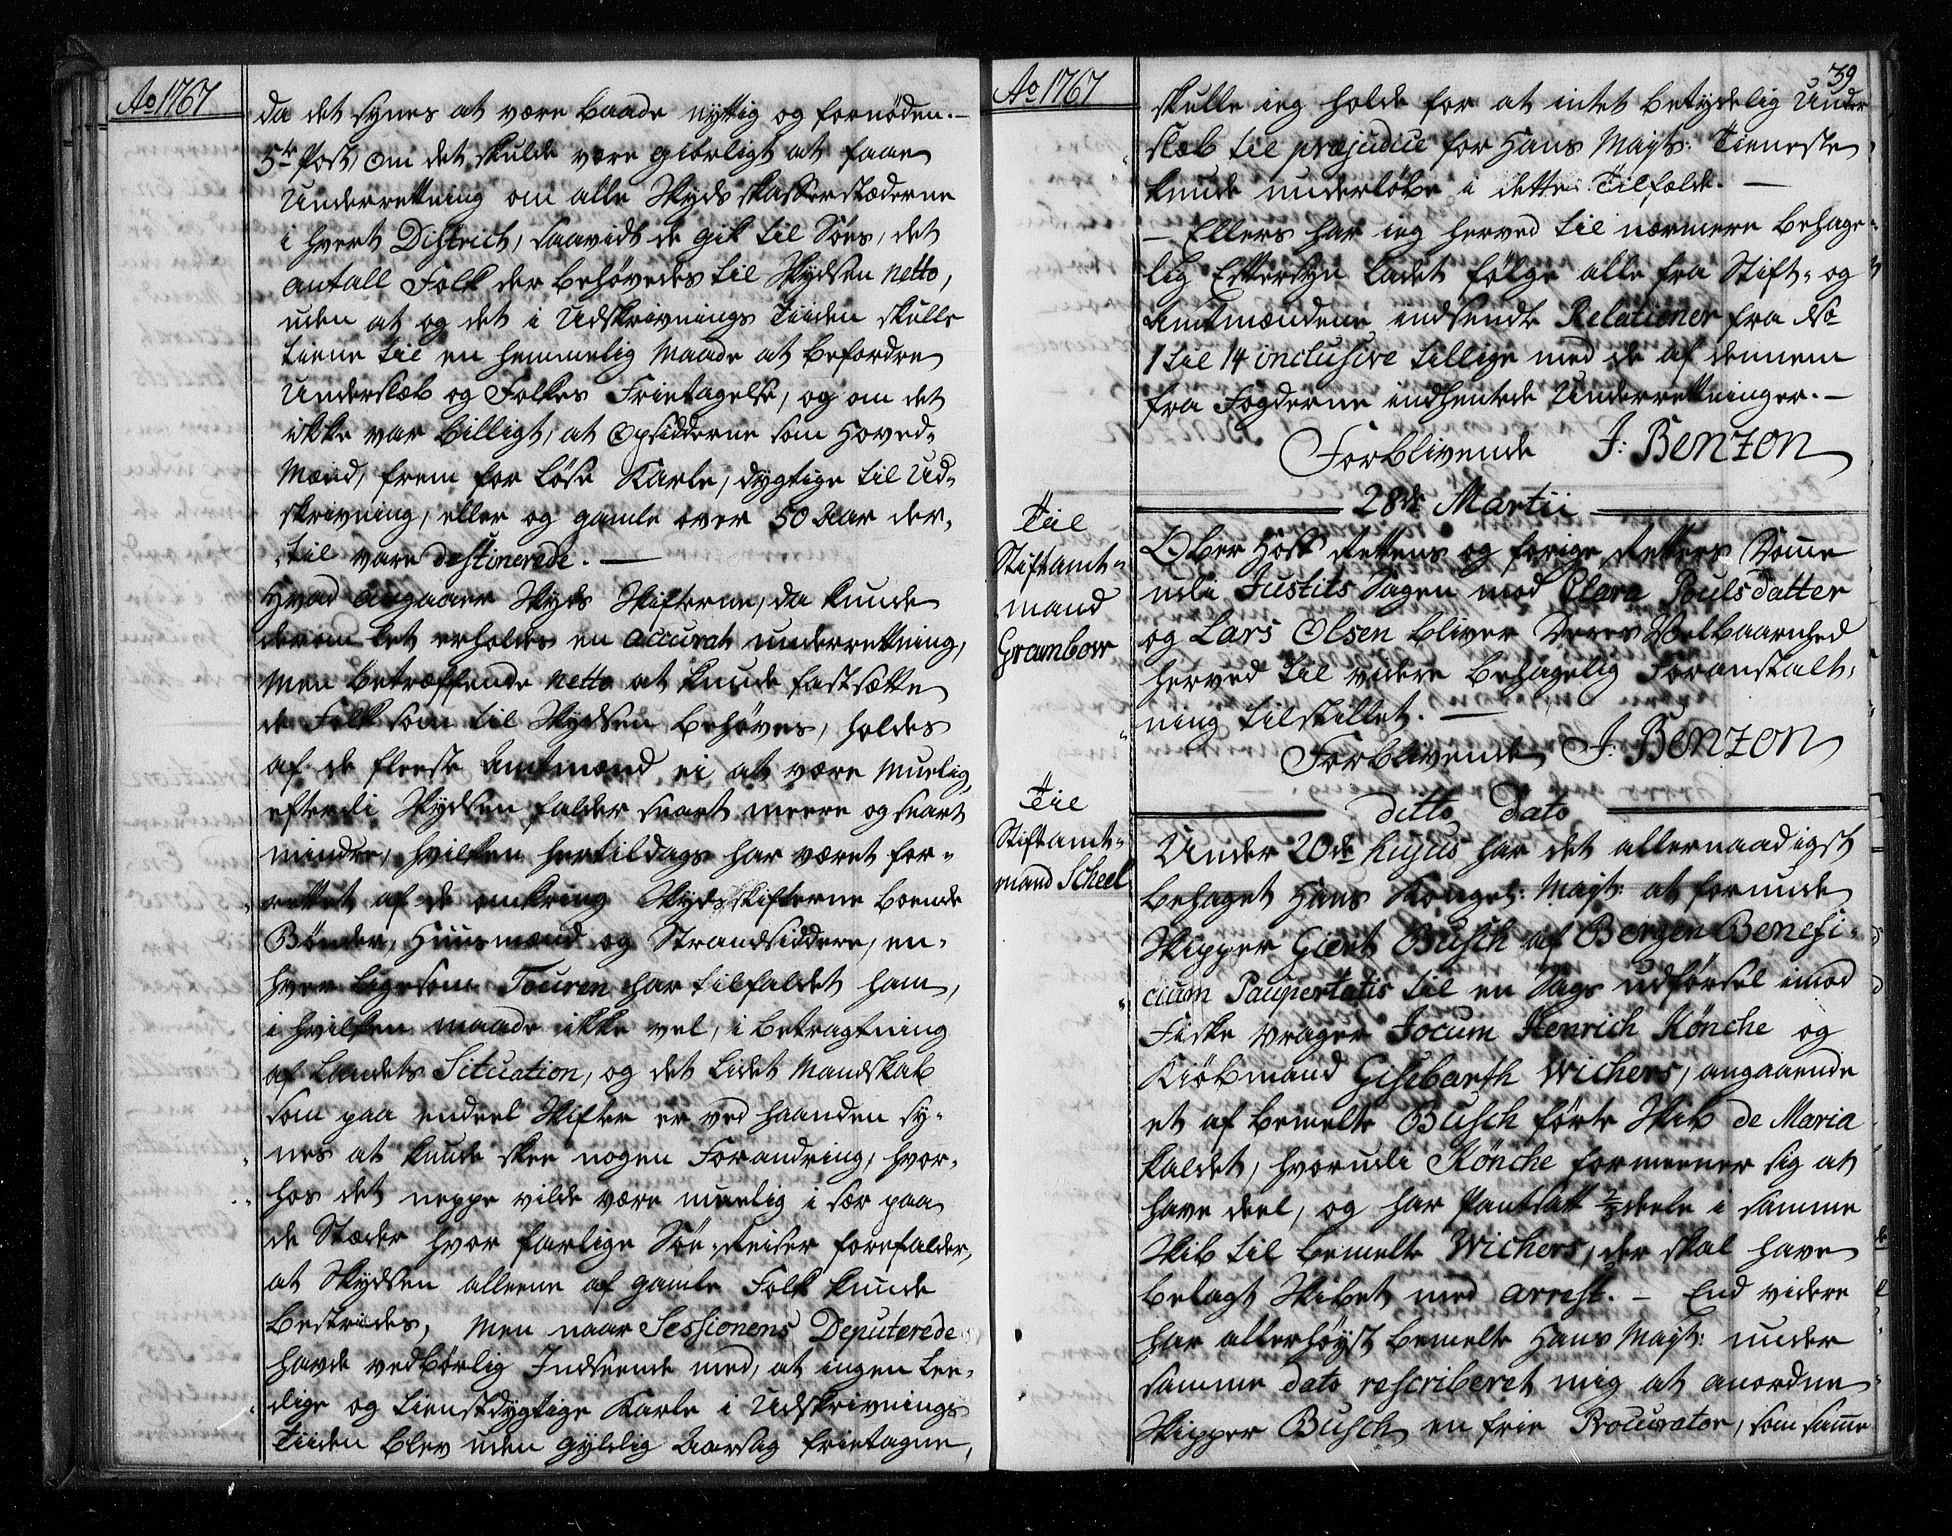 Ao 1767
da det synes at være baade nyttig og fornøden. —
5te Post, om det skulde være giørligt at faae
Underretning om alle Skydsskafferstæderne
i hvert District, saavidt de gik til Søes, det
antall Folk der behøvedes til Skydsen netto,
uden at og det i Udskrivnings Tiiden skulle
tiene til en hemmelig Maade at befordre
Underslæb og Folkes Frietagelse, og om det
ikke var billigt, at Opsidderne som Hoved-
Mænd, frem for løse Karle, dygtige til Ud-
skrivning, eller og gamle over 50 Aar der-
til vare destinerede. —
Hvad angaaer Skyds Skifterne, da kunde
derom let erholdes en accurat underretning,
Men betræffende netto at kunde fastsætte
de Folk som til Skydsen behøves, holdes
af de fleeste Amtmænd ei at være Muelig,
efterdi Skydsen falder snart meere og snart
mindre, hvilken hertildags har været for-
rettet af de omkring Skydsskifterne boende
Bønder, Huusmænd og Strandsiddere, en-
hver ligesom Touren har tilfaldet ham,
i hvilken maade ikke vel, i betragtning
af Landets Situation, og det lidet Mandskab
som paa endeel Skifter er ved haanden sy-
nes at kunde skee nogen Forandring, hvor-
hos det neppe vilde være muelig i sær paa
de Stæder hvor farlige Søe-Reiser forefalder,
at Skydsen alleene af gamle Folk kunde
bestrides, Men naar Sessionens Deputerede
havde vedbørlig Indseende med, at ingen lee-
dige og tienstdygtige Karle i Udskrivnings
Tiiden blev uden gyldig Aarsag frietagne,
Ao 1767
39
skulle ieg holde for at intet betydelig Under
slæb til præjudice for Hans Mayts: Tieneste
kunde underløbe i dette Tilfælde. —
— Ellers har ieg herved til nærmere behage-
lig Eftersyn ladet følge alle fra Stift- og
Amtmændene indsendte Relationer fra No
1 til 14 inclusive tillige med de af dennem
fra Fogderne indhentede Underretninger. —
Forblivende J: Benzon
28de Martii
Til
Stiftamt-
mand
Grambow
Ober Hof Rettens og forige Retters Domme
udi Justits Sagen mod Clara Pouls datter
og Lars Olsen bliver Deres Velbaarenhed
herved til videre behagelig Foranstalt-
ning tilstillet. —
Forblivende J: Benzon
ditto dato
Til
Stiftamt-
mand Scheel
Under 20de hujus har det allernaadigst
behaget Hans Kongel: Mayt: at forunde
Skipper Giert Busch af Bergen Benefi-
cium Paupertatis til en Sags udførsel imod
Fiske Vrager Jocum Henrich Kønche og
Kiøbmand Gisebarth Wichers, angaaende
et af bemelte Busch førte Skib de Maria
kaldet, hvorudi Kønche formeener sig at
have deel, og har Pantsatt 2/3 deele i samme
Skib til bemelte Wichers, der skal have
belagt Skibet med arrest. — End videre
har allerhøyst bemelte Hans Mayt: under
samme dato rescriberet mig at anordne
Skipper Busch en frie Procurator, som samme